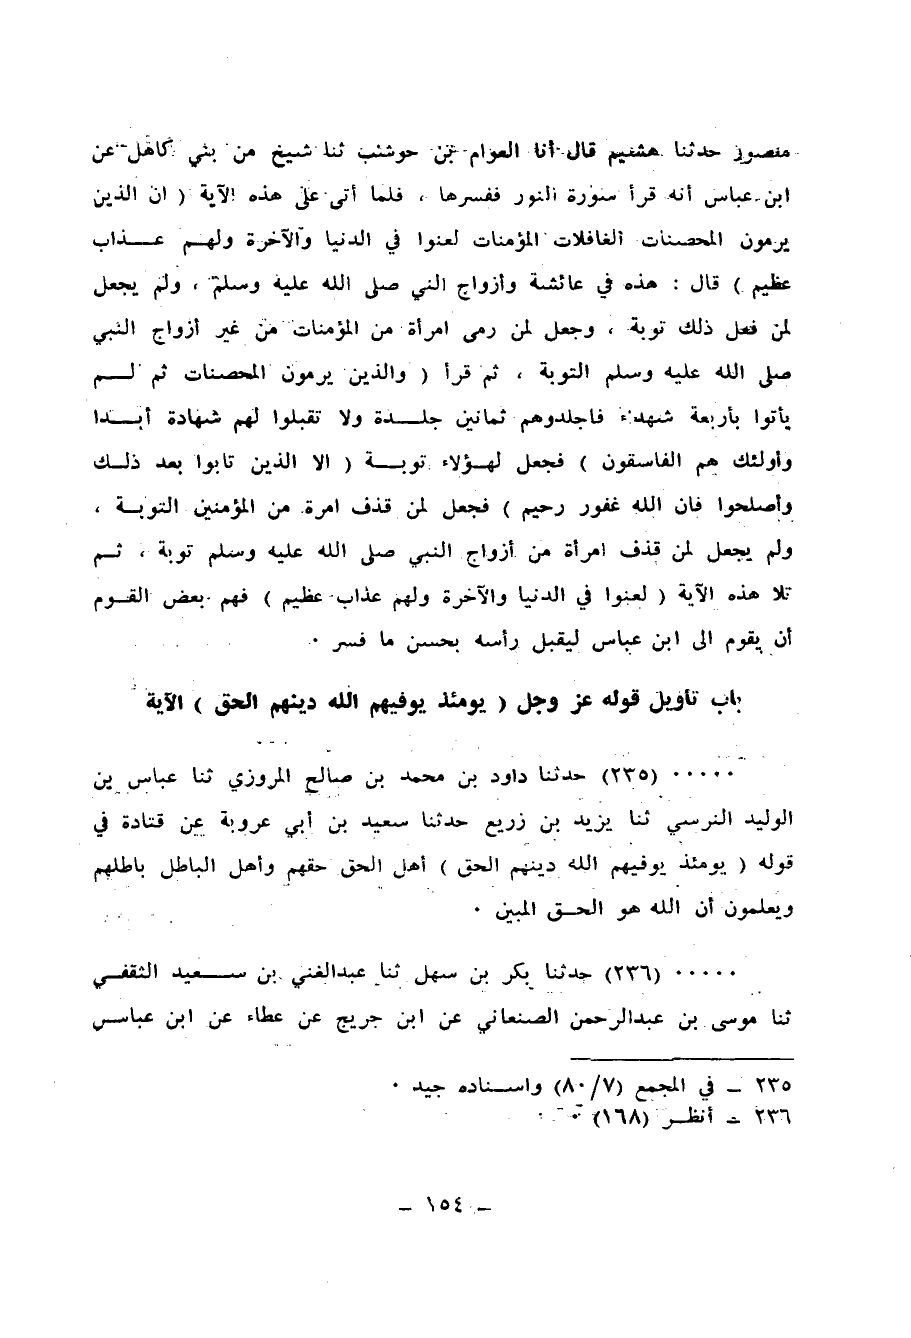 منصور حدثنا هشيم قال أنا العوام بن حوشب ثنا شيخ من بني كاهل عن
ابن عباس أنه قرأ سورة النور ففسرها ، فلما أتى على هذه الآية ( ان الذين
يرمون المحصنات الغافلات المؤمنات لعنوا في الدنيا والآخرة ولهم عذاب
عظيم ) قال : هذه في عائشة وأزواج النبي صلى الله عليه وسلم ، ولم يجعل
لمن فعل ذلك توبة ، وجعل لمن رمى امرأة من المؤمنات من غير أزواج النبي
صلى الله عليه وسلم التوبة ، ثم قرأ ( والذين يرمون المحصنات ثم لم
يأتوا بأربعة شهداء فاجلدوهم ثمانين جلدة ولا تقبلوا لهم شهادة أبدا
وأولئك هم الفاسقون ) فجعل لهؤلاء توبة ( الا الذين تابوا بعد ذلك
وأصلحوا فان الله غفور رحيم ) فجعل لمن قذف امرة من المؤمنين التوبة ،
ولم يجعل لمن قذف امرأة من أزواج النبي صلى الله عليه وسلم توبة ، ثم
تلا هذه الآية ( لعنوا في الدنيا والآخرة ولهم عذاب عظيم ) فهم بعض القوم
أن يقوم الى ابن عباس ليقبل رأسه بحسن ما فسر ٠
باب تأويل قوله عز وجل ( يومئذ يوفيهم الله دينهم الحق ) الآية
٠٠٠٠٠ (٢٣٥) حدثنا داود بن محمد بن صالح المروزي ثنا عباس بن
الوليد النرسي ثنا يزيد بن زريع حدثنا سعيد بن أبي عروبة عن قتادة في
قوله ( يومئذ يوفيهم الله دينهم الحق ) أهل الحق حقهم وأهل الباطل باطلهم
ويعلمون أن الله هو الحق المبين ٠
٠٠٠٠٠ (٢٣٦) حدثنا بكر بن سهل ثنا عبدالغني بن سعيد الثقفي
ثنا موسى بن عبدالرحمن الصنعاني عن ابن جريج عن عطاء عن ابن عباس
٢٣٥ ـ في المجمع (٨٠/٧) واسناده جيد ٠
٢٣٦ ـ أنظر (١٦٨) ٠
ـ ١٥٤ ـ